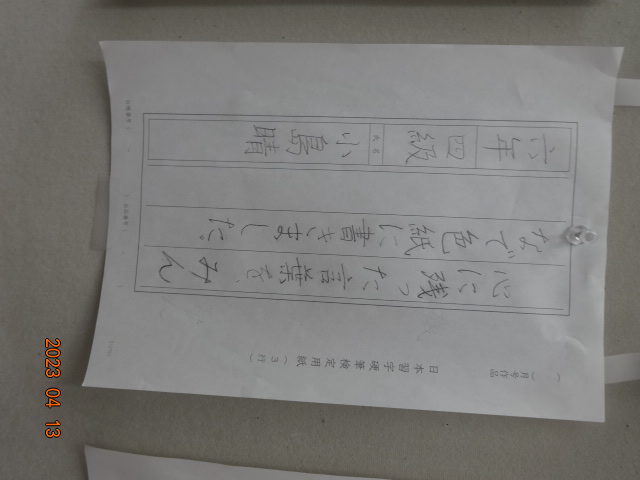 日本習字硬筆検定用紙（3行）
月号作品
心に残った言葉を、みん
なで色紙に書きました。
六年
四級
氏名
小島晴
2023 04 13